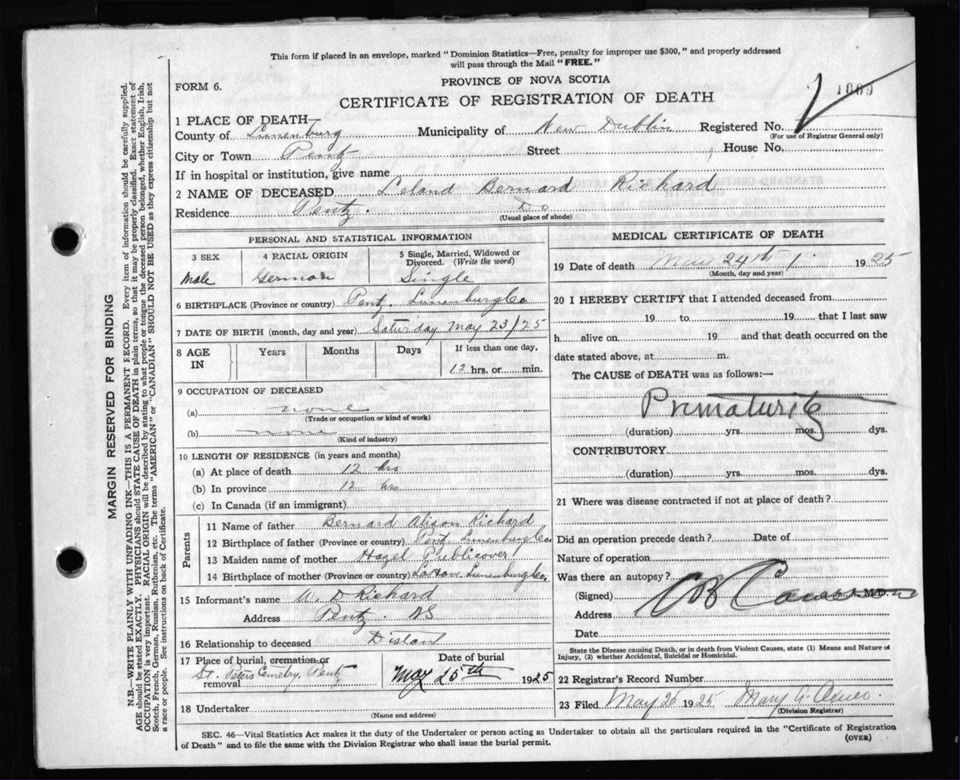 This form if placed in an envelope, marked "Dominion Statistics—Free, penalty for improper use $300," and properly addressed
will pass through the Mail "FREE."
PROVINCE OF NOVA SCOTIA
FORM 6.
CERTIFICATE OF REGISTRATION OF DEATH
1009
1 PLACE OF DEATH
County of Lunenburg Municipality of New Dublin Registered No.
(For use of Registrar General only)
City or Town Pentz Street House No.
If in hospital or institution, give name
2 NAME OF DECEASED Leland Bernard Richard
Residence Pentz. Do
(Usual place of abode)
PERSONAL AND STATISTICAL INFORMATION
3 SEX
Male
4 RACIAL ORIGIN
German
5 Single, Married, Widowed or
Divorced. (Write the word)
Single
6 BIRTHPLACE (Province or country) Pentz, Lunenburg Co
7 DATE OF BIRTH (month, day and year) Saturday May 23/25
8 AGE
IN
Years Months Days If less than one day,
12 hrs. or min.
9 OCCUPATION OF DECEASED
(a) none
(Trade or occupation or kind of work)
(b) none
(Kind of industry)
10 LENGTH OF RESIDENCE (in years and months)
(a) At place of death 12 hrs
(b) In province 12 hrs
(c) In Canada (if an immigrant)
Parents
11 Name of father Bernard Richard
12 Birthplace of father (Province or country) Pentz Lunenburg Co
13 Maiden name of mother Hazel Publicover
14 Birthplace of mother (Province or country) LaHave Lunenburg Co,
15 Informant's name D Richard
Address Pentz. NS
16 Relationship to deceased
17 Place of burial, cremation or
removal
St. Peters Cemetry, Pentz
Date of burial
May 25th 1925
18 Undertaker
(Name and address)
MEDICAL CERTIFICATE OF DEATH
19 Date of death May 24th 1925
(Month, day and year)
20 I HEREBY CERTIFY that I attended deceased from
19 to 19 that I last saw
h alive on 19 and that death occurred on the
date stated above, at m.
The CAUSE of DEATH was as follows:—
Prematurity
(duration) yrs. mos. dys.
CONTRIBUTORY
(duration) yrs. mos. dys.
21 Where was disease contracted if not at place of death?
Did an operation precede death? Date of
Nature of operation
Was there an autopsy?
(Signed) M.D.
Address
Date
State the Disease causing Death, or in death from Violent Causes, state (1) Means and Nature of
Injury, (2) whether Accidental, Suicidal or Homicidal.
22 Registrar's Record Number
23 Filed May 26 1925 Mary A.
(Division Registrar)
SEC. 46—Vital Statistics Act makes it the duty of the Undertaker or person acting as Undertaker to obtain all the particulars required in the "Certificate of Registration
of Death" and to file the same with the Division Registrar who shall issue the burial permit.
(OVER)
MARGIN RESERVED FOR BINDING
N.B.—WRITE PLAINLY WITH UNFADING INK—THIS IS A PERMANENT RECORD. Every item of information should be carefully supplied.
AGE should be stated EXACTLY. PHYSICIANS should STATE CAUSE OF DEATH in plain terms, so that it may be properly classified. Exact statement of
OCCUPATION is very important. RACIAL ORIGIN will be described by stating to what people or tongue the deceased person belonged, whether English, Irish,
Scotch, French, German, Russian, Ruthenian, etc. The terms "AMERICAN" or "CANADIAN" SHOULD NOT BE USED as they express citizenship but not
a race or people. See instructions on back of Certificate.